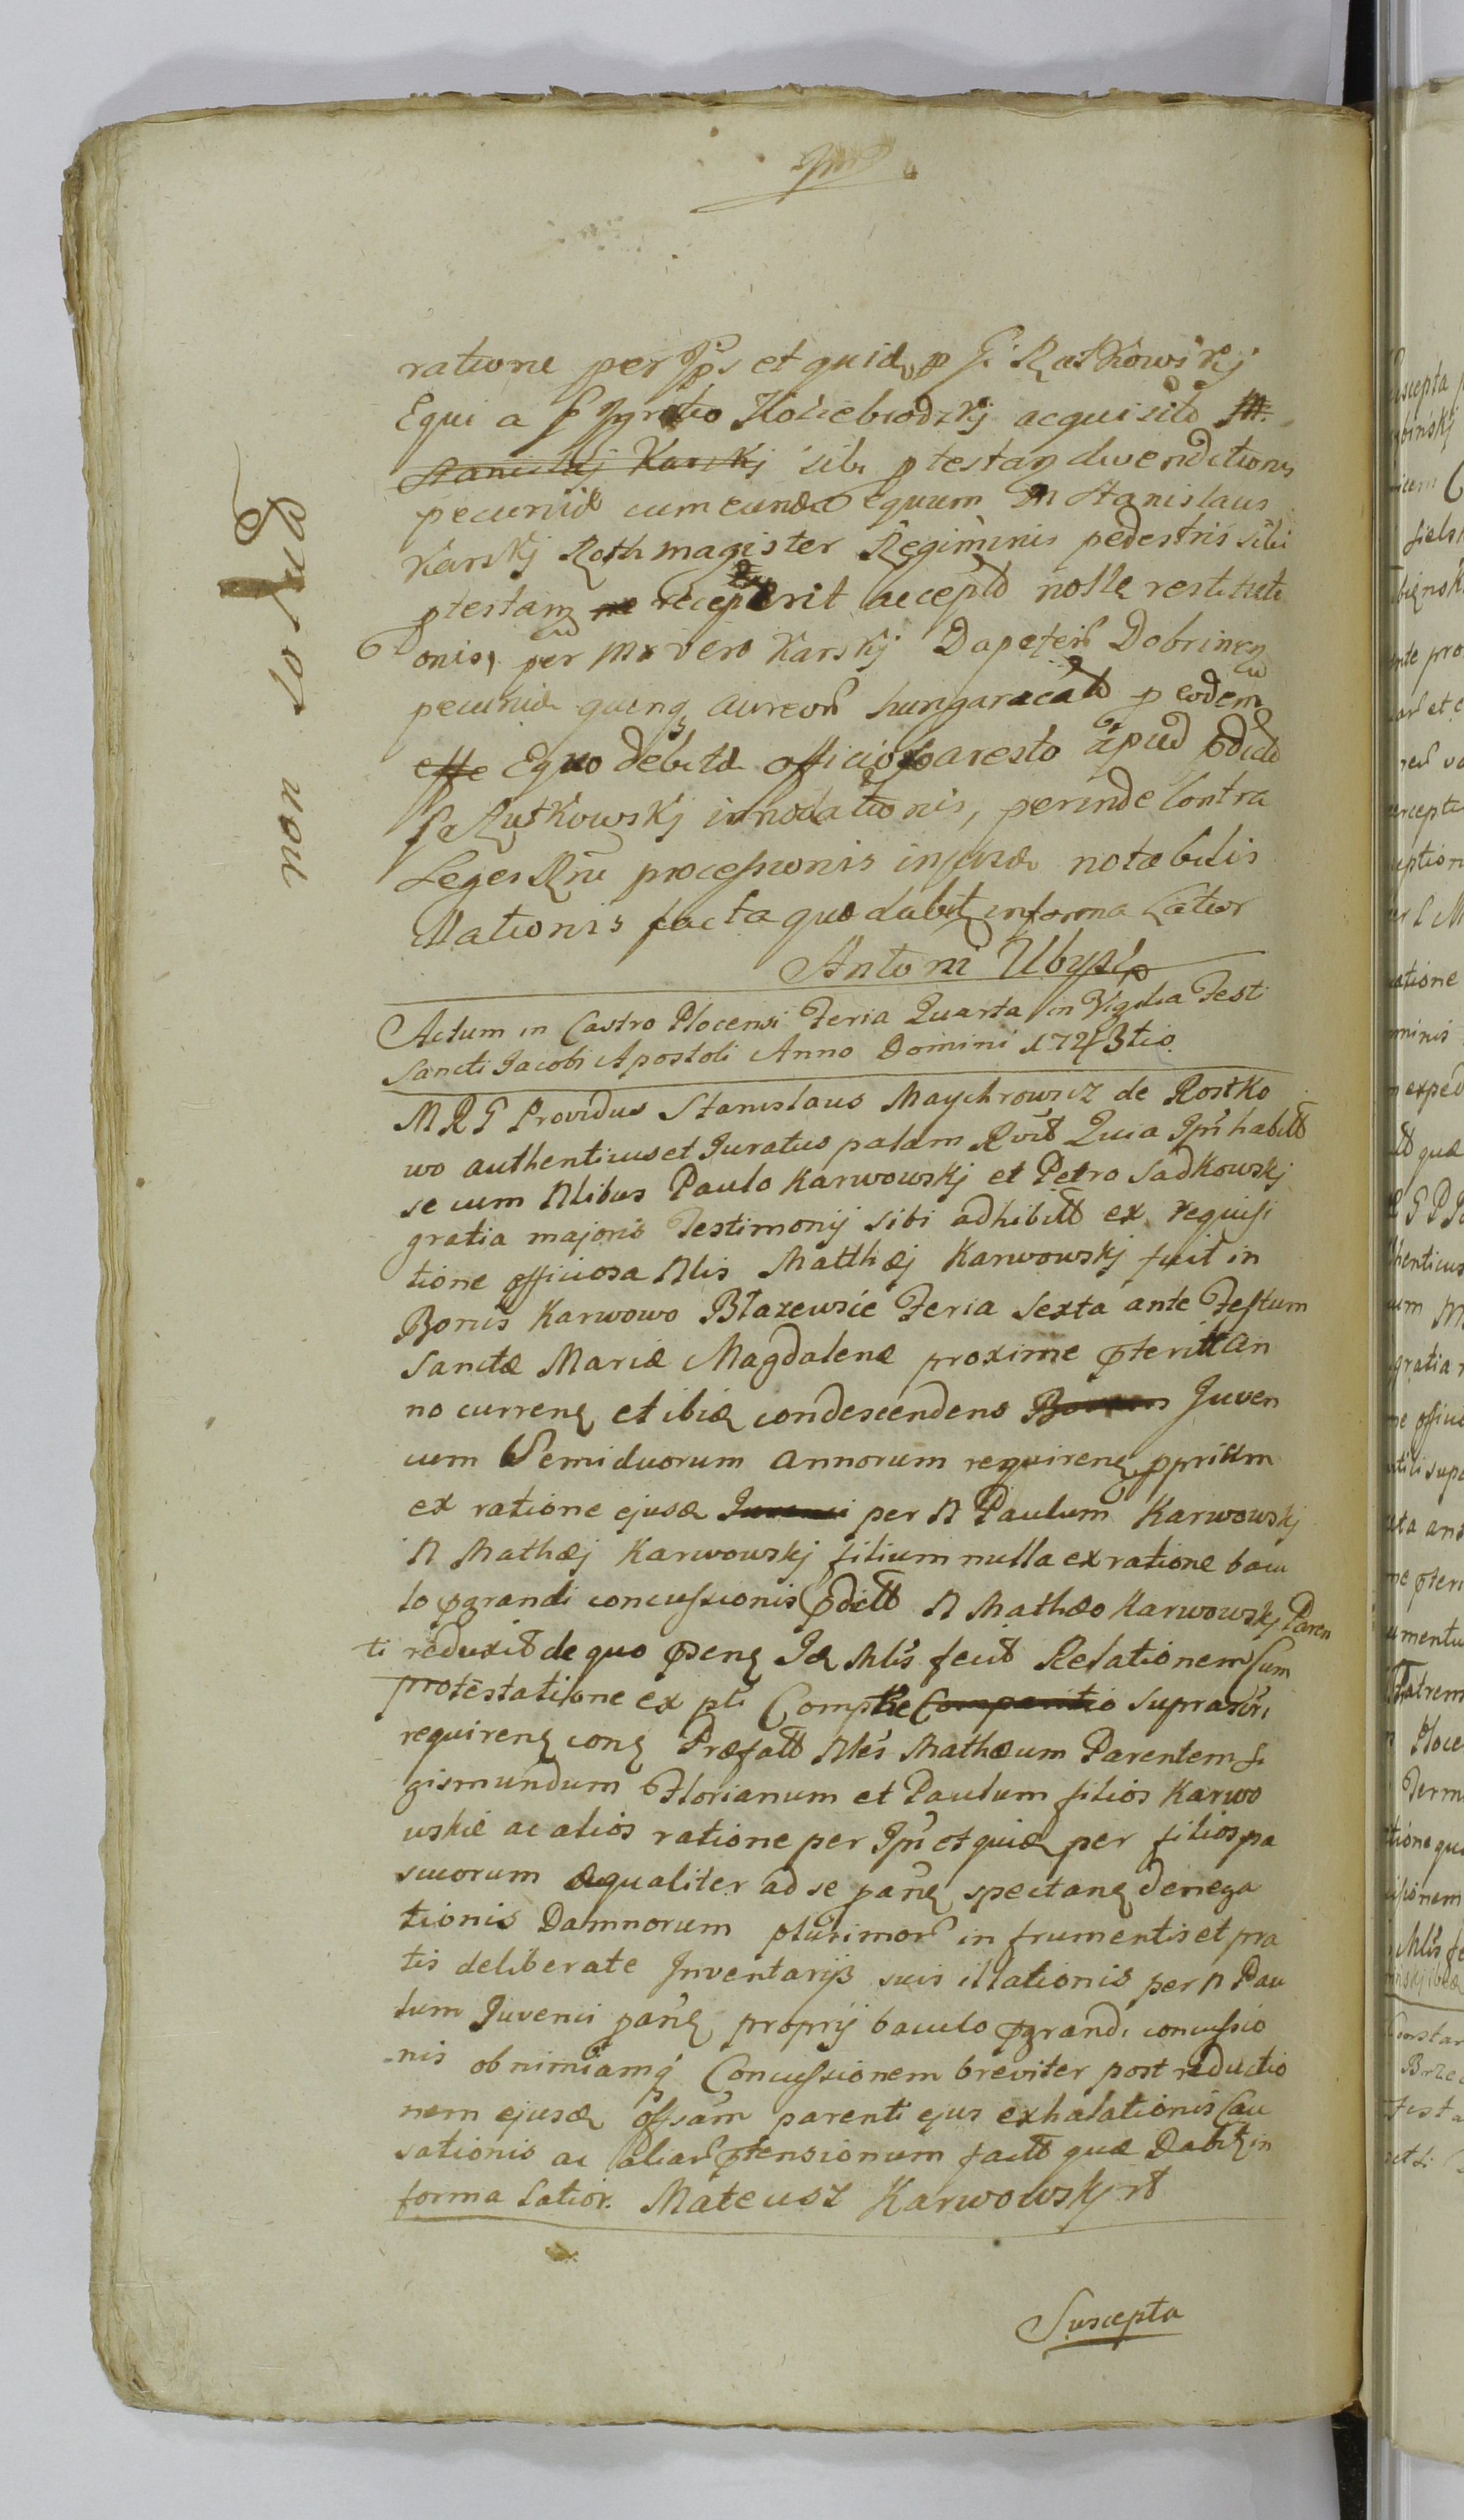 ratione per Jps et quidẽ p G Rutkowskj
Equi a G Ignatio Koziebrodzkj acquisito M.
Stanislaj Karskj sibi ptestan divenditionis
pecuniæ cum eundẽ equum M Stanislaus
Karskj Rothmagister Regiminis pedestris sibi
ptestam receperit accepto nolle restituti
onis, per M vero Karskj Dapefeř Dobrinen
pecuniæ quinq aureorũ hungaricall p eodem
esse Equo debitæ officioso aresto apud pdicto
G Rutkowskj innodationis, perinde Contra
Leges Rni processionis injuriæ notabilis
illationis facta quæ dabit in forma Latior
Antoni Ubysz
Actum in Castro Plocensi Feria Quarta in Vigilia Festi
Sancti Jacobi Apostoli Anno Domini 1723tio
M R G Providus Stanislaus Maychrowicz de Rostko
wo authenticus et Juratus palam Rvit Quia Jpñ habitt
se cum Nlibus Paulo Karwowskj et Petro Sadkowskj
gratia majoris Testimonij sibi adhibitt ex requisi
tione officiosa Nlis Matthæj Karwowskj fuit in
Bonis Karwowo Błazewsie Feria Sexta ante Festum
Sanctæ Mariæ Magdalenæ proxime pteritt an
no curreng et ibid condescendens Juven
cum Semiduorum annorum requireng pprium
ex ratione ejusd Juvenci per N Paulum Karwowskj
N Mathæj Karwowskj filium nulla ex ratione bacu
lo pgrandi concussionis pditt N Mathæo Karwowskj Paren
ti reduxit de quo pseng Id Mlis fecit Relationem Cum
protestatione ex pte Comptie Comparitio suprascri
requireng cong Præfatt Nles Mathæum Parentem Si
gismundum Florianum et Paulum filios Karwo
wskie ac alios ratione per Jpñ et quid per filios pa
scuorum æqualiter ad se pañg spectang denega
tionis Damnorum plurimorũ in frumentis et pra
tis deliberate Inventarijs suis illationis per N Pau
lum Juvenci pañg proprij baculo pgrandi concussio
nis ob nimiamq Concussionem breviter post reductio
nem ejusd offsam parenti ejus exhalationis Cau
sationis ac aliar ptensionum factt quæ Dabit in
forma Latior. Mateusz Karwowskj
Suscepta
non sol